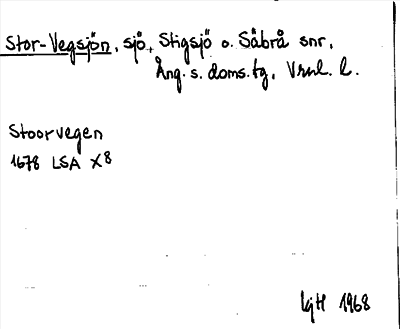 Stor-Vegsjön, sjö, Stigsjö o. Säbrå snr,
Ång. s. doms. tg, Vrnl. l.
Stoorvegen
1678 LSA X8
LgH 1968